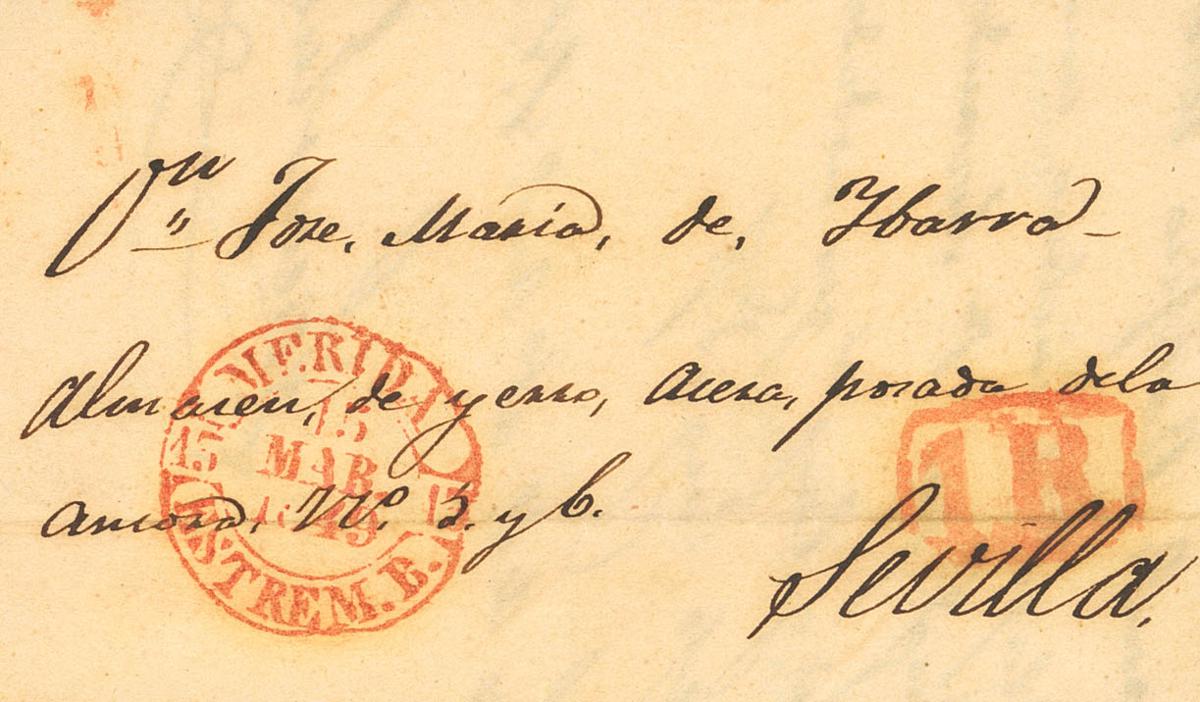 Dn Jose, Maria, de, Ybarra
Almacen, de yerro, Acera, posada dela
Ancora, No. 5. y 6.
Sevilla.
MERIDA
15
MAR.
1845
ESTREM. B.
1R